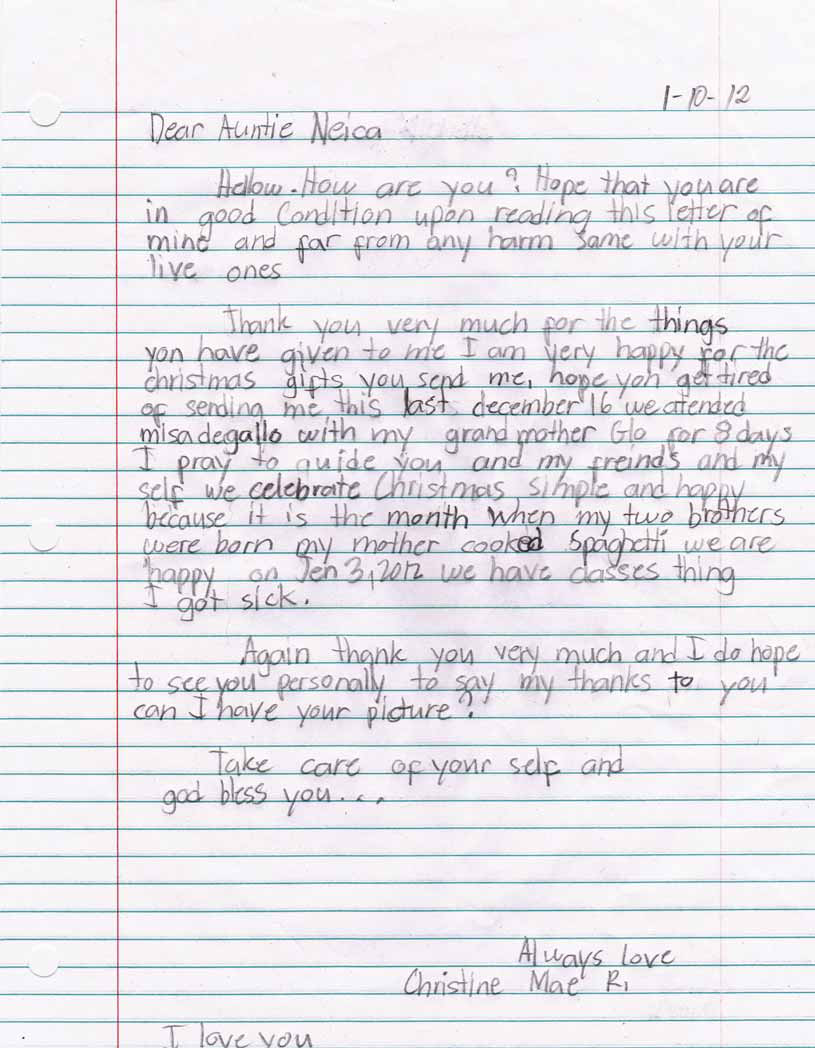 1-10-12
Dear Auntie Neica
Hellow. How are you? Hope that you are
in good Condition upon reading this letter of
mine and far from any harm same with your
live ones
Thank you very much for the things
yon have given to me I am very happy for the
christmas gifts you send me, hope yoh get tired
of sending me, this last december 16 we atended
misadegallo with my grandmother Glo for 8 days
I pray to guide you and my freinds and my
self we celebrate Christmas simple and happy
because it is the month when my two brothers
were born my mother cooked spaghetti we are
happy on Jen 3, 2012 we have classes thing
I got sick.
Again thank you very much and I do hope
to see you personally to say my thanks to you
can I have your picture?
Take care of your self and
god bless you...
Always love
Christine Mae R.
I love you